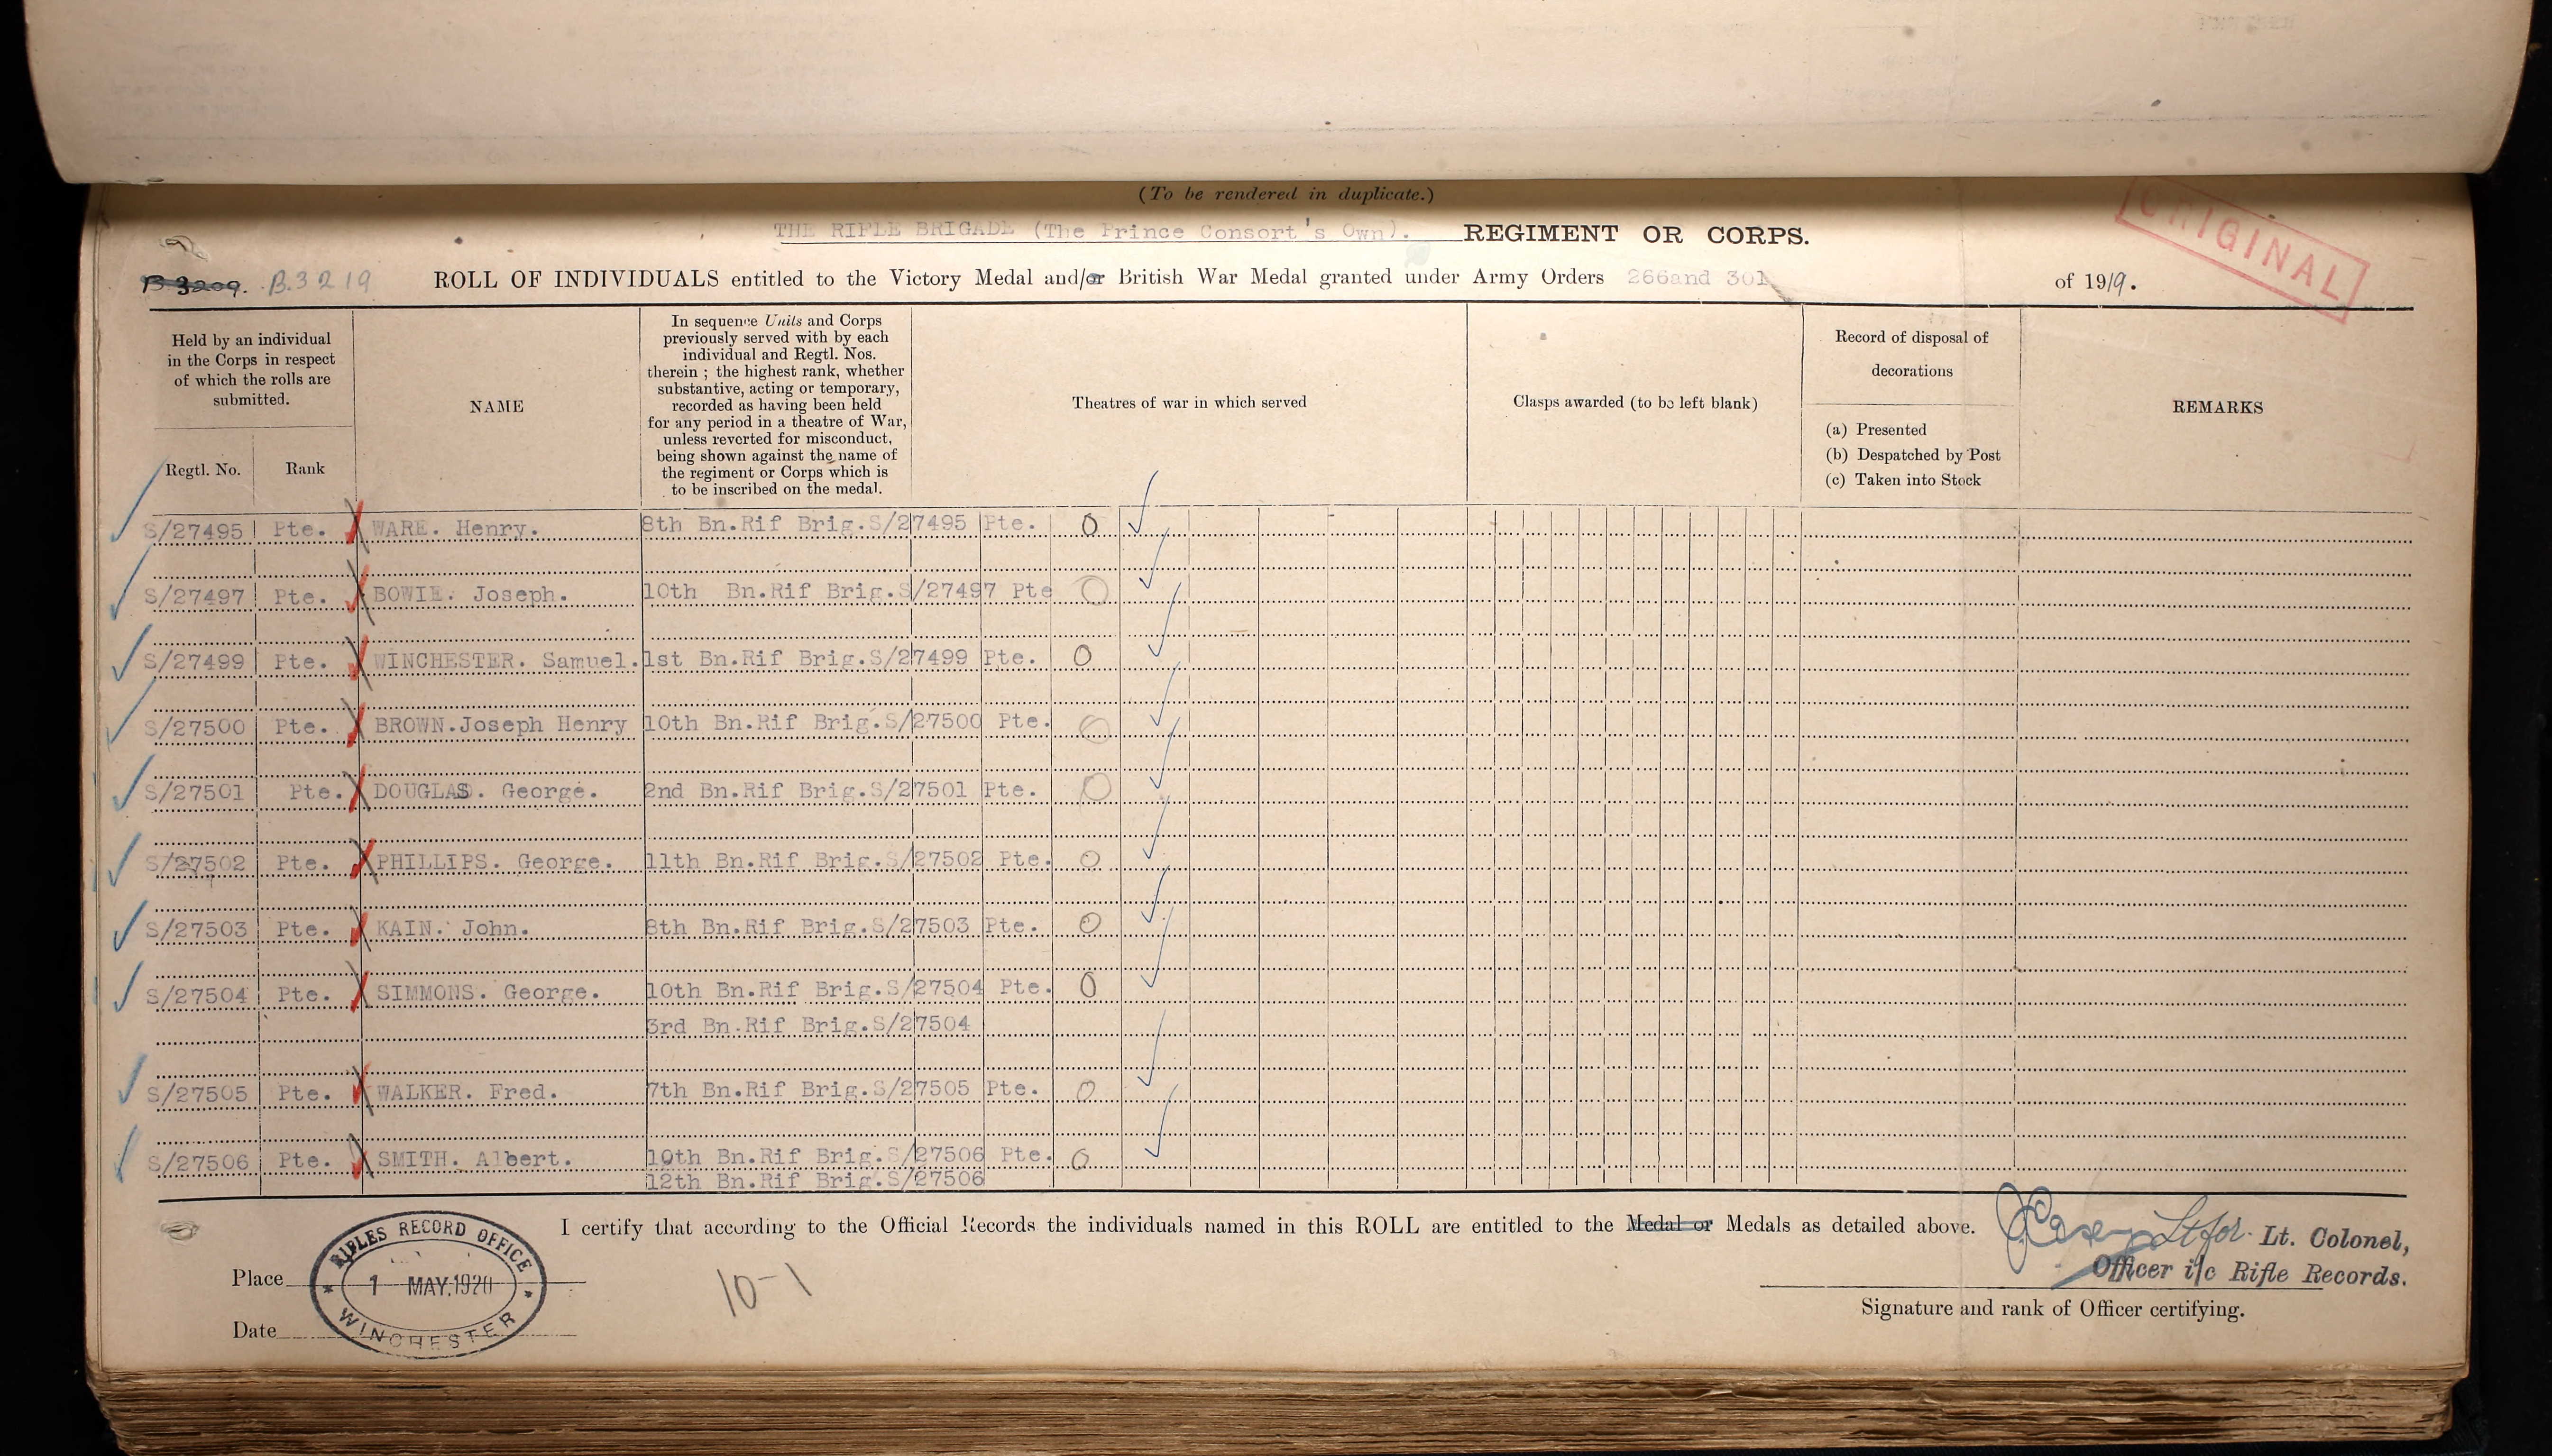 (To be rendered in duplicate.)
THE RIFLE BRIGADE (The Prince Consort's Own). REGIMENT OR CORPS.
ORIGINAL
B 3209. B.3219 ROLL OF INDIVIDUALS entitled to the Victory Medal and/or British War Medal granted under Army Orders 266and 301 of 1919.
Held by an individual
in the Corps in respect
of which the rolls are
submitted.
Regtl. No. Rank
NAME
In sequence Units and Corps
previously served with by each
individual and Regtl. Nos.
therein ; the highest rank, whether
substantive, acting or temporary,
recorded as having been held
for any period in a theatre of War,
unless reverted for misconduct,
being shown against the name of
the regiment or Corps which is
to be inscribed on the medal.
Theatres of war in which served
Clasps awarded (to be left blank)
Record of disposal of
decorations
(a) Presented
(b) Despatched by Post
(c) Taken into Stock
REMARKS
S/27495 Pte. WARE. Henry. 8th Bn.Rif Brig.S/27495 Pte. O
S/27497 Pte. BOWIE. Joseph. 10th Bn.Rif Brig.S/27497 Pte O
S/27499 Pte. WINCHESTER. Samuel. 1st Bn.Rif Brig.S/27499 Pte. O
S/27500 Pte. BROWN.Joseph Henry 10th Bn.Rif Brig.S/27500 Pte. O
S/27501 Pte. DOUGLAS. George. 2nd Bn.Rif Brig.S/27501 Pte. O
S/27502 Pte. PHILLIPS. George. 11th Bn.Rif Brig.S/27502 Pte. O
S/27503 Pte. KAIN. John. 8th Bn.Rif Brig.S/27503 Pte. O
S/27504 Pte. SIMMONS. George. 10th Bn.Rif Brig.S/27504 Pte. O
3rd Bn.Rif Brig.S/27504
S/27505 Pte. WALKER. Fred. 7th Bn.Rif Brig.S/27505 Pte. O
S/27506 Pte. SMITH. Albert. 10th Bn.Rif Brig.S/27506 Pte. O
12th Bn.Rif Brig.S/27506
I certify that according to the Official Records the individuals named in this ROLL are entitled to the Medal or Medals as detailed above.
Lt for Lt. Colonel,
Officer i/c Rifle Records.
Signature and rank of Officer certifying.
Place
Date
RIFLES RECORD OFFICE
1 MAY.1920
WINCHESTER
10-1